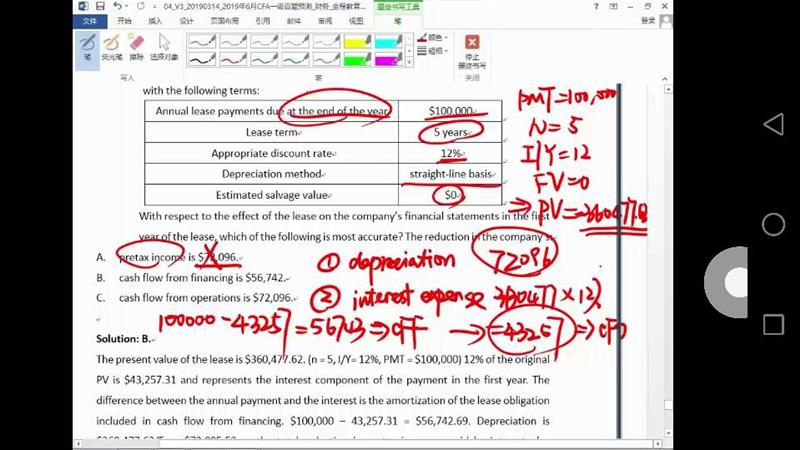 04_V3_20190314_2019年6月CFA一级百题预测_财务_金程教育...
墨迹书写工具
文件 开始 插入 设计 页面布局 引用 邮件 审阅 视图 笔
登录
笔 荧光笔 擦除 选择对象
颜色
粗细
停止墨迹书写
写入 笔 关闭
with the following terms:
Annual lease payments due at the end of the year $100,000
Lease term 5 years
Appropriate discount rate 12%
Depreciation method straight-line basis
Estimated salvage value $0
PMT=100,000
N=5
I/Y=12
FV=0
⇒ PV=-360477.62
With respect to the effect of the lease on the company's financial statements in the first
year of the lease, which of the following is most accurate? The reduction in the company's:
A. pretax income is $72,096.
B. cash flow from financing is $56,742.
C. cash flow from operations is $72,096.
① depreciation 72096
② interest expense 360477×12%
100000-43257=56743⇒CFF → =43257⇒CFO
Solution: B.
The present value of the lease is $360,477.62. (n = 5, I/Y= 12%, PMT = $100,000) 12% of the original
PV is $43,257.31 and represents the interest component of the payment in the first year. The
difference between the annual payment and the interest is the amortization of the lease obligation
included in cash flow from financing. $100,000 – 43,257.31 = $56,742.69. Depreciation is